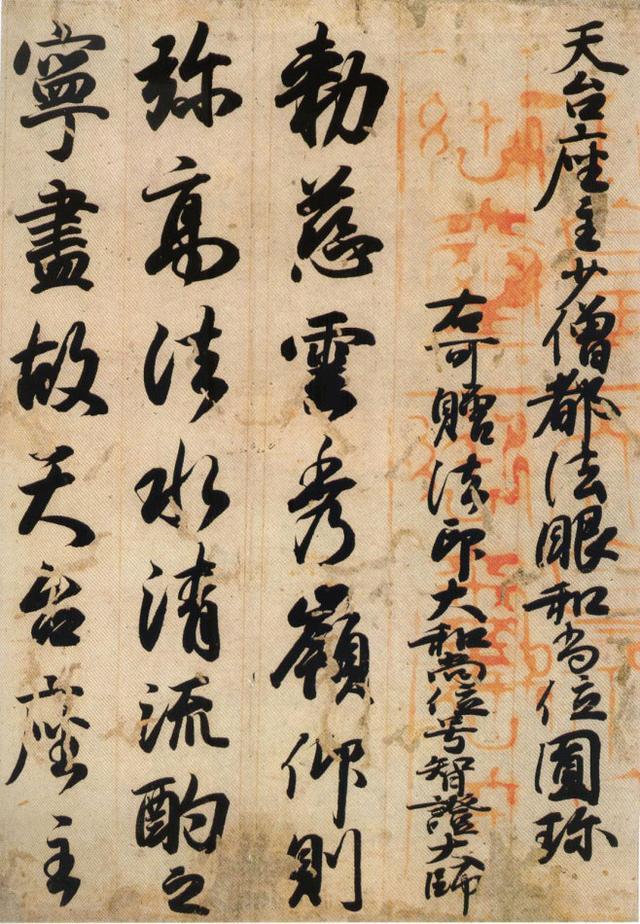 天台座主少僧都法眼和尚位圓珎
右可贈法印大和尚位号智證大師
勅慈雲秀嶺仰則
弥高法水清流酌之
寧盡故天台座主